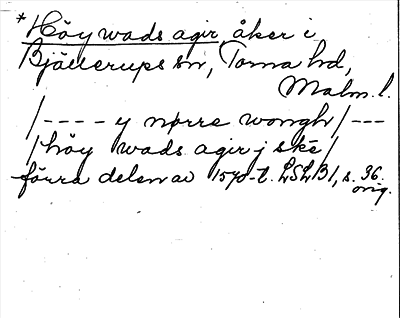 *Höy wads agir, åker i
Bjällerups sn, Torna hd,
Malm. l.
/---- y nørre wongh/---
/höy wads agir j skē/
förra delen av 1570-t. LSLB1, s. 36.
orig.